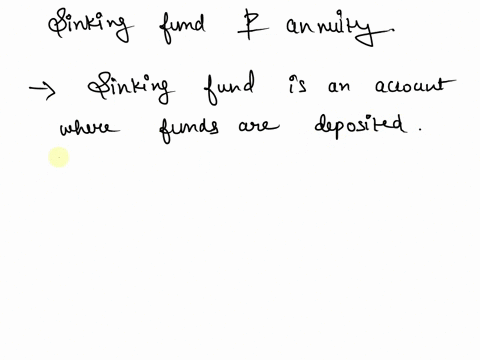 Sinking fund & annuity.
→ Sinking fund is an account
where funds are deposited.